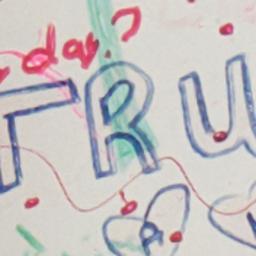 day?
TRU